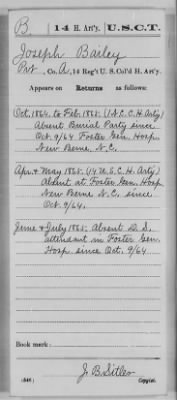 B. 14 H. Art'y. U.S.C.T.
Joseph Bailey
Pvt, Co. A, 14 Reg't U. S. Col'd H. Art'y.
Appears on Returns as follows:
Oct. 1864 to Feb. 1865. (1 N.C.C.H. Arty)
Absent Burial Party since
Oct. 9/64 Foster Gen. Hosp.
New Berne N.C.
Apr. & May 1865. (14 U.S.C.H. Arty)
Absent at Foster Gen. Hosp
New Berne N.C. since
Oct. 9/64.
June & July 1865. Absent D.S.
attendant in Foster Gen.
Hosp since Oct. 9/64
Book mark:
J. B. Sitler
(546) Copyist.